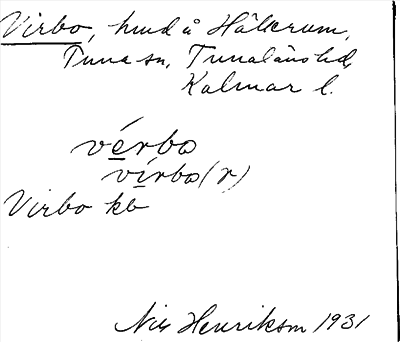 Virbo, hmd å Hälterum,
Tuna sn, Tunaläns hd,
Kalmar l.
vérbo
vírbo(r)
Virbo kb
Nils Henriksm 1931